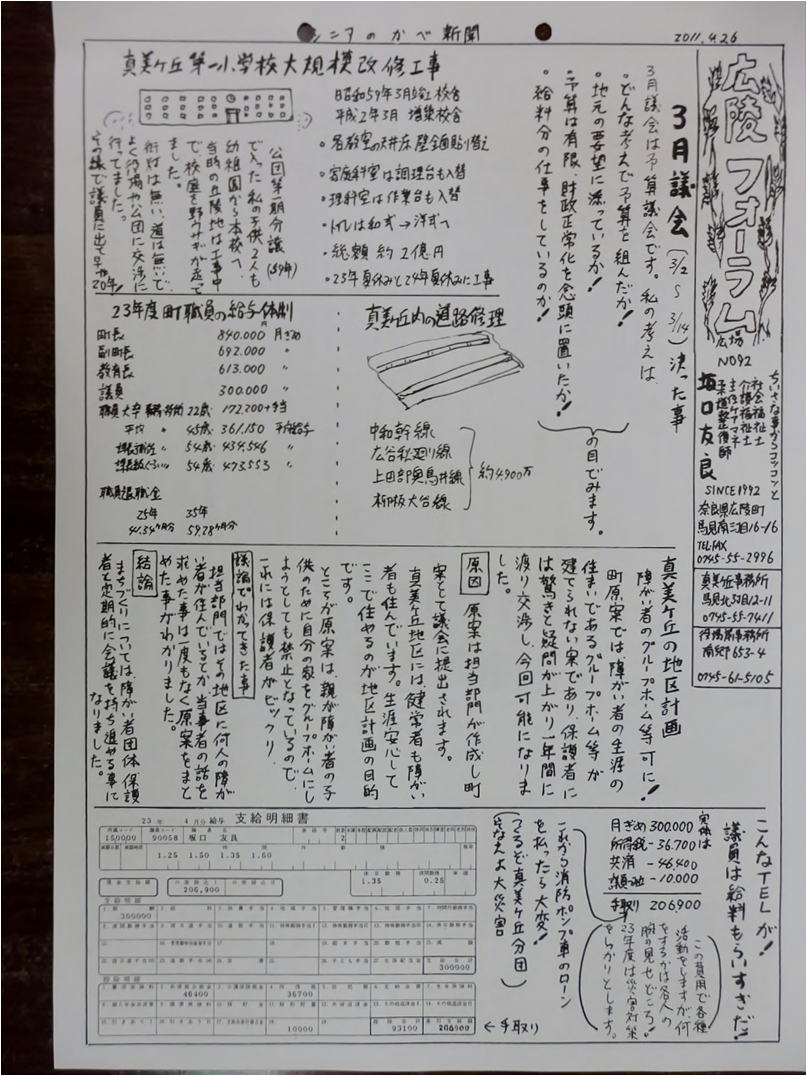 シニアのかべ新聞
2011.4.26
広陵フォーラム
広場
NO92
ちいさな事からコツコツと
社会福祉士
介護福祉士
主任ケアマネ
柔道整復師
坂口友良
SINCE1992
奈良県広陵町
馬見南三丁目16-16
TEL FAX
0745-55-2996
真美ヶ丘事務所
馬見北5丁目12-11
0745-55-7411
役場前事務所
南郷653-4
0745-61-5105
3月議会(3/2〜3/14)決った事
3月議会は予算議会です。私の考えは、
・どんな考えで予算を組んだか!
・地元の要望に添っているか!
・予算は有限、財政正常化を念頭に置いたか!
・給料分の仕事をしているのか!
の目でみます。
真美ヶ丘第一小学校大規模改修工事
昭和59年3月竣工校舎
平成2年3月 増築校舎
・各教室の天井床壁全面貼り替え
・家庭科室は調理台も入替
・理科室は作業台も入替
・トイレは和式→洋式へ
・総額 約2億円
・23年夏休みと24年夏休みに工事
公団第一期分譲(59年)
で入った私の子供2人も
幼稚園から本校へ
当時の丘陵地は工事中
で、校庭を野ウサギが走って
ました。
街灯は無い、道は無いで
よく役場や公団に交渉に
行ってました。
その縁で議員に出て早や20年!
23年度町職員の給与体制
町長 840.000円 月ぎめ
副町長 692.000 〃
教育長 613.000 〃
議員 300.000 〃
職員大学 22歳 172.200+手当
平均 〃 45歳 361.150 平均給与
54歳 434.546 〃
54歳 473.553 〃
職員退職金
25年 35年
41.34ヶ月分 59.28ヶ月分
真美ヶ丘内の道路修理
中和幹線
広谷秋廻り線
上田部奥鳥井線
大谷線
約4.900万
真美ヶ丘の地区計画
障がい者のグループホーム等可に!
町原案では障がい者の生涯の
住まいであるグループホーム等が
建てられない案であり、保護者に
は驚きと疑問が上がり一年間に
渡り交渉し、今回可能になりま
した。
原因 原案は担当部門が作成し町
案として議会に提出されます。
真美ヶ丘地区には、健常者も障がい
者も住んでいます。生涯安心して
ここで住めるのが地区計画の目的
です。
ところが原案は、親が障がい者の子
供のために自分の家をグループホームにし
ようとしても禁止となっているので、
これには保護者がビックリ、
議論でわかってきた事
担当部門ではその地区に何人の障が
い者が住んでいるとか、当事者の話を
求めた事は一度もなく原案をまと
めた事がわかりました。
結論
まちづくりについては、障がい者団体、保護
者と定期的に会議を持ち進める事に
なりました。
こんなTELが!
議員は給料もらいすぎだ!
実体は
月ぎめ 300.000
所得税 -36.700
共済 -46.400
-10.000
手取り 206.900
この費用で各種
活動をしますが、何
をするかは各人の
腕の見せどころ!
23年度は災害対策
をしっかりとします。
これから消防ポンプ車のローン
を払ったら大変!
つくるぞ真美ヶ丘分団
そなえよ大災害
23年 4月分 給与 支給明細書
150000 90058 坂口 友良
1.25 1.50 1.35 1.50
1.35 0.25
206,900
支給明細
300000
支給合計
300000
控除明細
46400 36700
10000 93100 206900
←手取り